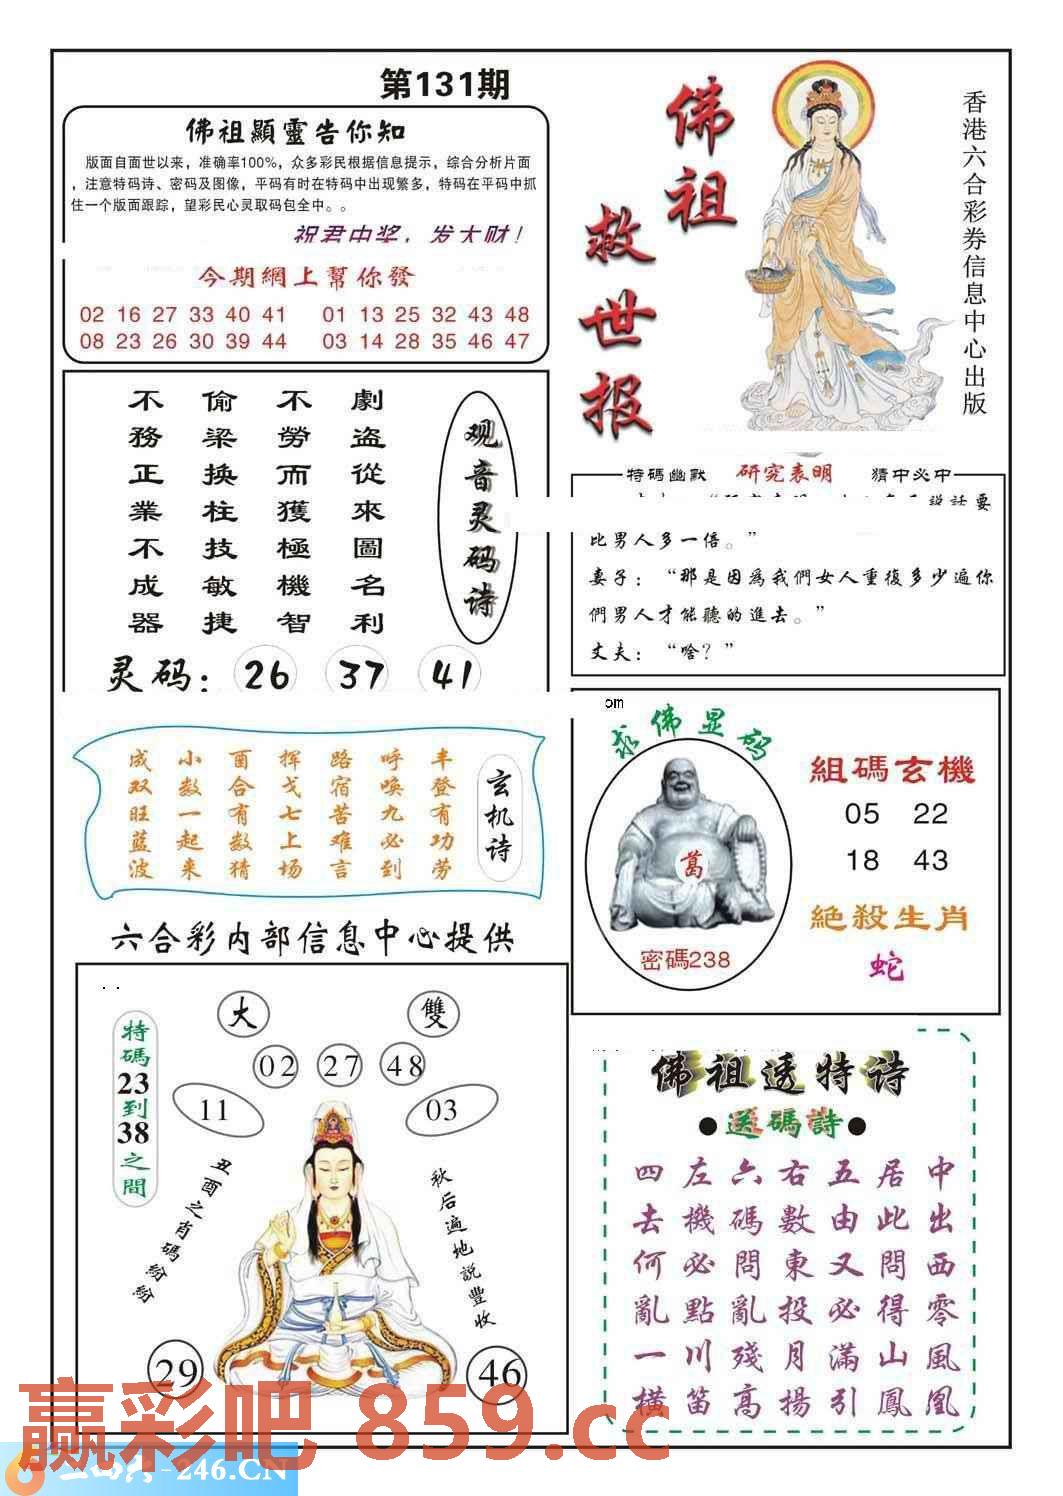 第131期
佛祖顯靈告你知
版面自面世以来，准确率100%，众多彩民根据信息提示，综合分析片面
，注意特码诗、密码及图像，平码有时在特码中出现繁多，特码在平码中抓
住一个版面跟踪，望彩民心灵取码包全中。。
祝君中奖，发大财！
今期網上幫你發
02 16 27 33 40 41 01 13 25 32 43 48
08 23 26 30 39 44 03 14 28 35 46 47
佛祖
救世报
香港六合彩券信息中心出版
观音灵码诗
劇盗從來圖名利
不勞而獲極機智
偷梁换柱技敏捷
不務正業不成器
灵码：26 37 41
特碼幽默 研究表明 猜中必中
説話要
比男人多一倍。”
妻子：“那是因為我們女人重復多少遍你
們男人才能聽的進去。”
丈夫：“啥？”
玄机诗
丰登有功劳
呼唤九必到
路宿苦难言
挥戈七上场
酉合有数猜
小数一起来
成双旺蓝波
om
求佛显码
葛
密碼238
組碼玄機
05 22
18 43
絕殺生肖
蛇
六合彩内部信息中心提供
特碼23到38之間
大 雙
02 27 48
11 03
丑酉之肖碼紛紛
秋后遍地説豐收
29 46
佛祖透特诗
●送碼詩●
中出西零風凰
居此問得山鳳
五由又必滿引
右數東投月揚
六碼問亂殘高
左機必點川笛
四去何亂一横
赢彩吧 859.cc
-246.CN